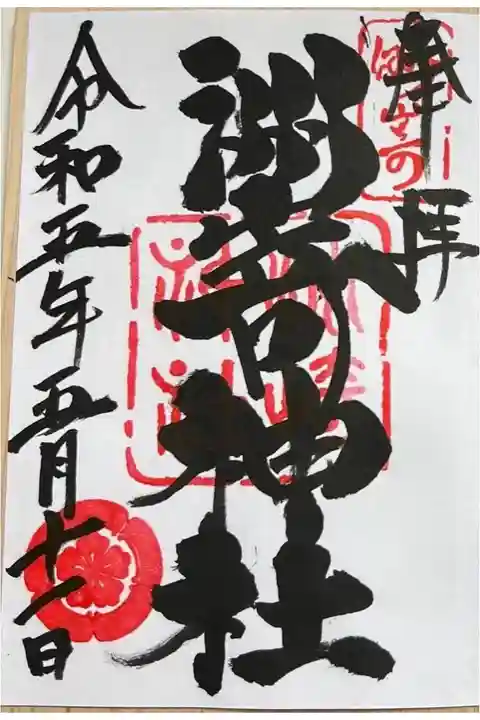 奉拝
洲嵜神社
令和五年五月十一日